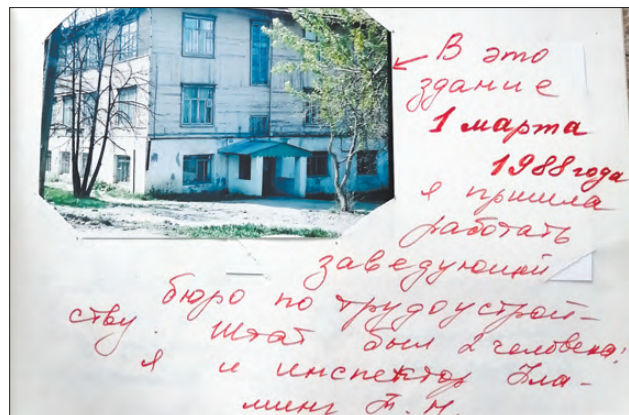 В это
здание
1 марта
1988 года
я пришла
работать
заведующей
бюро по трудоустрой-
ству. Штат был 2 человека:
я и инспектор Фла-
минг Т. Н.